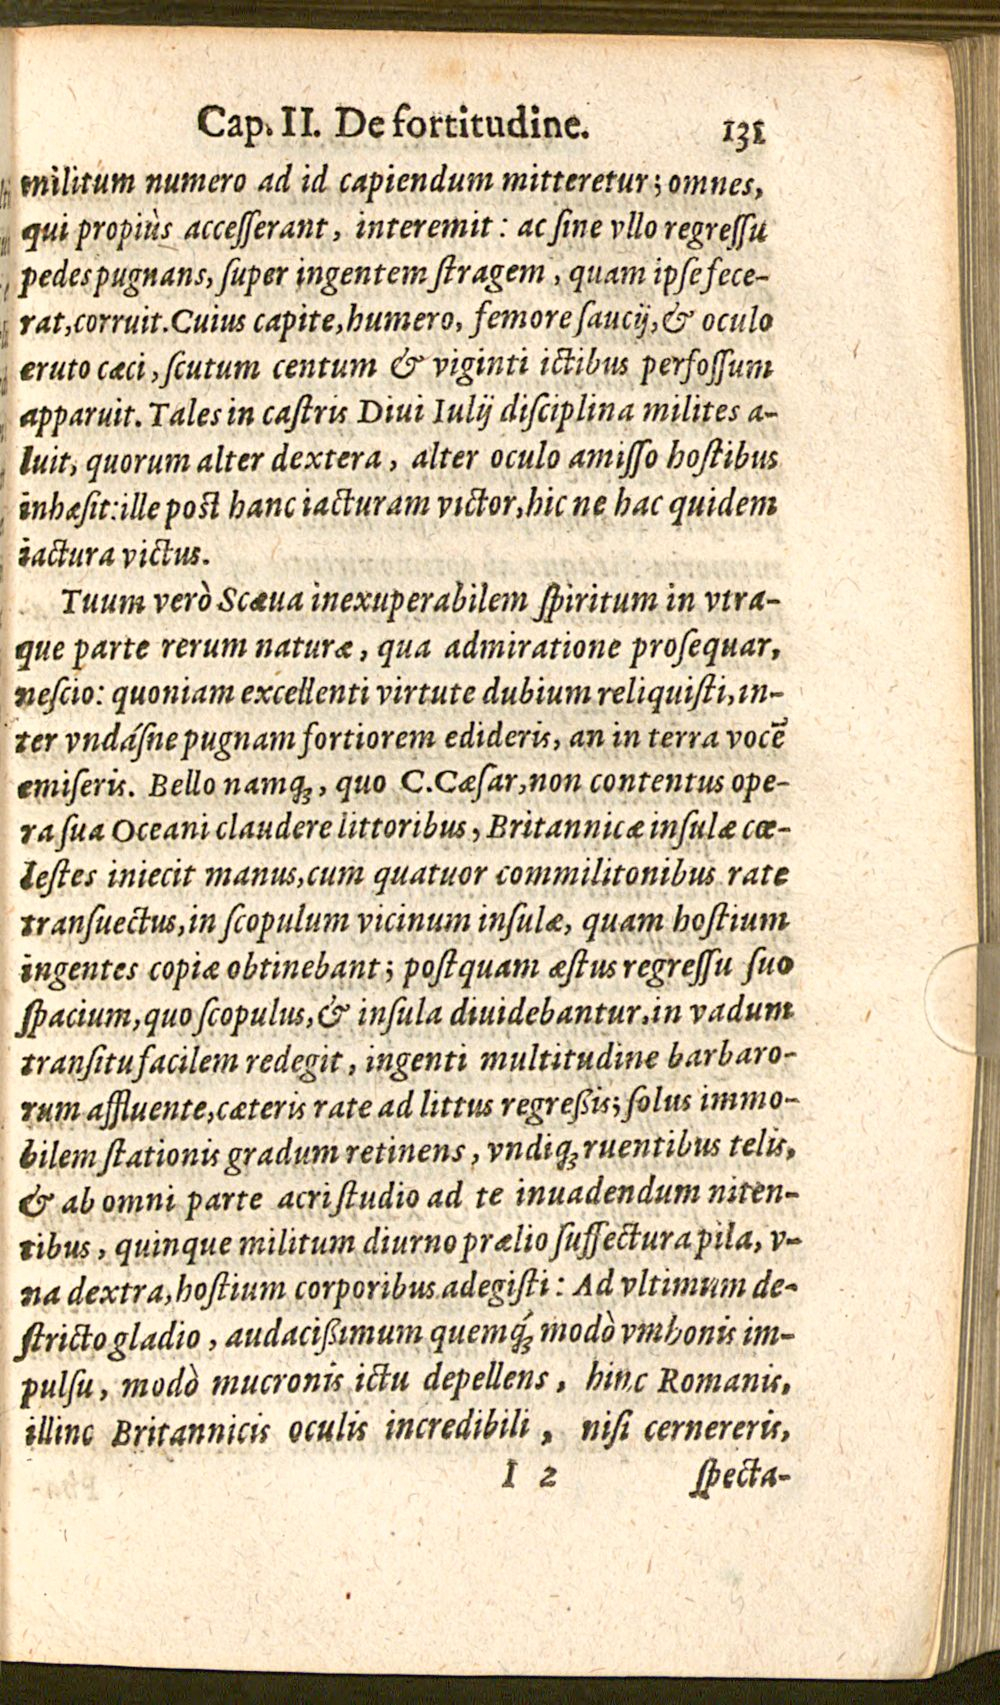 Cap. II. De fortitudine. 131
militum numero ad id capiendum mitteretur; omnes,
qui propiùs accesserant, interemit: ac sine vllo regressu
pedes pugnans, super ingentem stragem, quam ipse fece-
rat, corruit. Cuius capite, humero, femore saucij, & oculo
eruto cæci, scutum centum & viginti ictibus perfossum
apparuit. Tales in castris Diui Iulij disciplina milites a-
luit, quorum alter dextera, alter oculo amisso hostibus
inhæsit: ille post hanc iacturam victor, hic ne hac quidem
iactura victus.
Tuum verò Scæua inexuperabilem spiritum in vtra-
que parte rerum naturæ, qua admiratione prosequar,
nescio: quoniam excellenti virtute dubium reliquisti, in-
ter vndásne pugnam fortiorem edideris, an in terra vocē
emiseris. Bello namq́;, quo C. Cæsar, non contentus ope-
ra sua Oceani claudere littoribus, Britannicæ insulæ cœ-
lestes iniecit manus, cum quatuor commilitonibus rate
transuectus, in scopulum vicinum insulæ, quam hostium
ingentes copiæ obtinebant; postquam æstus regressu suo
spacium, quo scopulus, & insula diuidebantur, in vadum
transitu facilem redegit, ingenti multitudine barbaro-
rum affluente, cæteris rate ad littus regreßis; solus immo-
bilem stationis gradum retinens, vndiq; ruentibus telis,
& ab omni parte acri studio ad te inuadendum niten-
tibus, quinque militum diurno prælio suffectura pila, v-
na dextra, hostium corporibus adegisti: Ad vltimum de-
stricto gladio, audacißimum quemq́; modò vmbonis im-
pulsu, modò mucronis ictu depellens, hinc Romanis,
illinc Britannicis oculis incredibili, nisi cernereris,
I 2 specta-